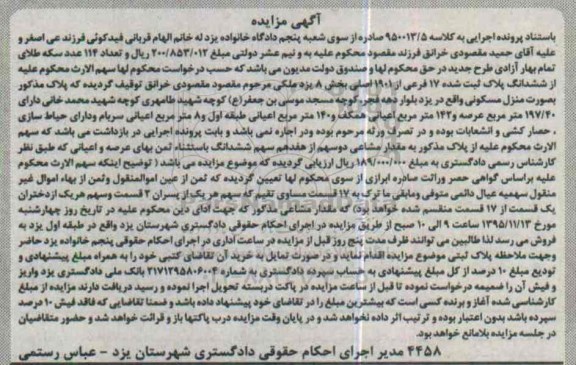 آگهی مزایده
باستناد پرونده اجرایی به کلاسه ۹۵۰۰۱۳/۵ صادره از سوی شعبه پنجم دادگاه خانواده یزد له خانم الهام قربانی فیدکوئی فرزند عی اصغر و
علیه آقای حمید مقصودی خرانق فرزند مقصود محکوم علیه به و نیم عشر دولتی مبلغ ۲۰۰/۸۵۳/۰۱۲ ریال و تعداد ۱۱۴ عدد سکه طلای
تمام بهار آزادی طرح جدید در حق محکوم لها و صندوق دولت مدیون می باشد که حسب درخواست محکوم لها سهم الارث محکوم علیه
از ششدانگ پلاک ثبت شده ۱۷ فرعی از اصلی بخش ۸ یزد ملکی مرحوم مقصود مقصودی خرانق توقیف گردیده که پلاک مذکور
بصورت منزل مسکونی واقع در یزد بلوار دهه فجر کوچه مسجد موسی بن جعفر(ع) کوچه شهید طامهری کوچه شهید محمد خانی دارای
۱۹۷/۴۰ متر مربع عرصه و ۱۴۲ متر مربع اعیانی همکف و ۱۴۰ متر مربع اعیانی طبقه اول و ۸ متر مربع اعیانی سرپام ودارای حیاط سازی
، حصار کشی و انشعابات بوده و در تصرف ورثه مرحوم بوده ودر اجاره نمی باشد و بابت پرونده اجرایی در بازداشت می باشد که سهم
الارث محکوم علیه از پلاک مذکور به مقدار مشاعی دوسهم از هفدهم سهم ششدانگ باستثناء ثمن بهای عرصه و اعیانی که طبق نظر
کارشناس رسمی دادگستری به مبلغ ۱۸۹/۰۰۰/۰۰۰ ریال ارزیابی گردیده که موضوع مزایده می باشد ( توضیح اینکه سهم الارث محکوم
علیه براساس گواهی حصر وراثت صادره ابرازی از سوی محکوم لها تعیین گردیده که ثمن از عین اموالمنقول وثمن از بهاء اموال غیر
منقول سهمیه عیال دائمی متوفی ومابقی ما ترک به ۱۷ قسمت مساوی تقسیم که سهم هر یک از پسران ۲ قسمت وسهم هر یک از دختران
یک قسمت از ۱۷ قسمت منقسم شده خواهد بود) که مقدار مشاعی مذکور که جهت ادای دین محکوم علیه در تاریخ روز چهارشنبه
مورخ ۱۳۹۵/۱۱/۱۳ ساعت ۹ الی ۱۰ صبح از طریق مزایده در اجرای احکام حقوقی دادگستری شهرستان یزد واقع در طبقه اول یزد به
فروش می رسد لذا طالبین می توانند ظرف مدت پنج روز قبل از مزایده در ساعت آداری در اجرای احکام حقوقی پنجم خانواده یزد حاضر
وجهت ملاحظه پلاک ثبتی موضوع مزایده اقدام نماید و در صورت تمایل به خرید آن تقاضای کتبی خود را به همراه مبلغ پیشنهادی و
تودیع مبلغ ۱۰ درصد از کل مبلغ پیشنهادی به حساب سپرده دادگستری به شماره ۲۱۷۱۲۹۵۸۰۶۰۰۴ بانک ملی دادگستری یزد واریز
و فیش آن را ضمیمه درخواست نموده تا قبل از ساعت مزایده در پاکت دربسته تحویل اجرا نموده و رسید دریافت دارند مزایده از مبلغ
کارشناسی شده آغاز و برنده کسی است که بیشترین مبلغ را در تقاضای خود پیشنهاد داده باشد و ضمنا تقاضایی که فاقد فیش ۱۰ درصد
سپرده باشد بدون اعتبار بوده و ترتیب اثر داده نخواهد شد و در پایان وقت مزایده درب پاکتها باز و قرائت خواهد شد و حضور متقاضیان
در جلسه مزایده بلامانع خواهد بود.
۴۴۵۸ مدیر اجرای احکام حقوقی دادگستری شهرستان یزد - عباس رستمی